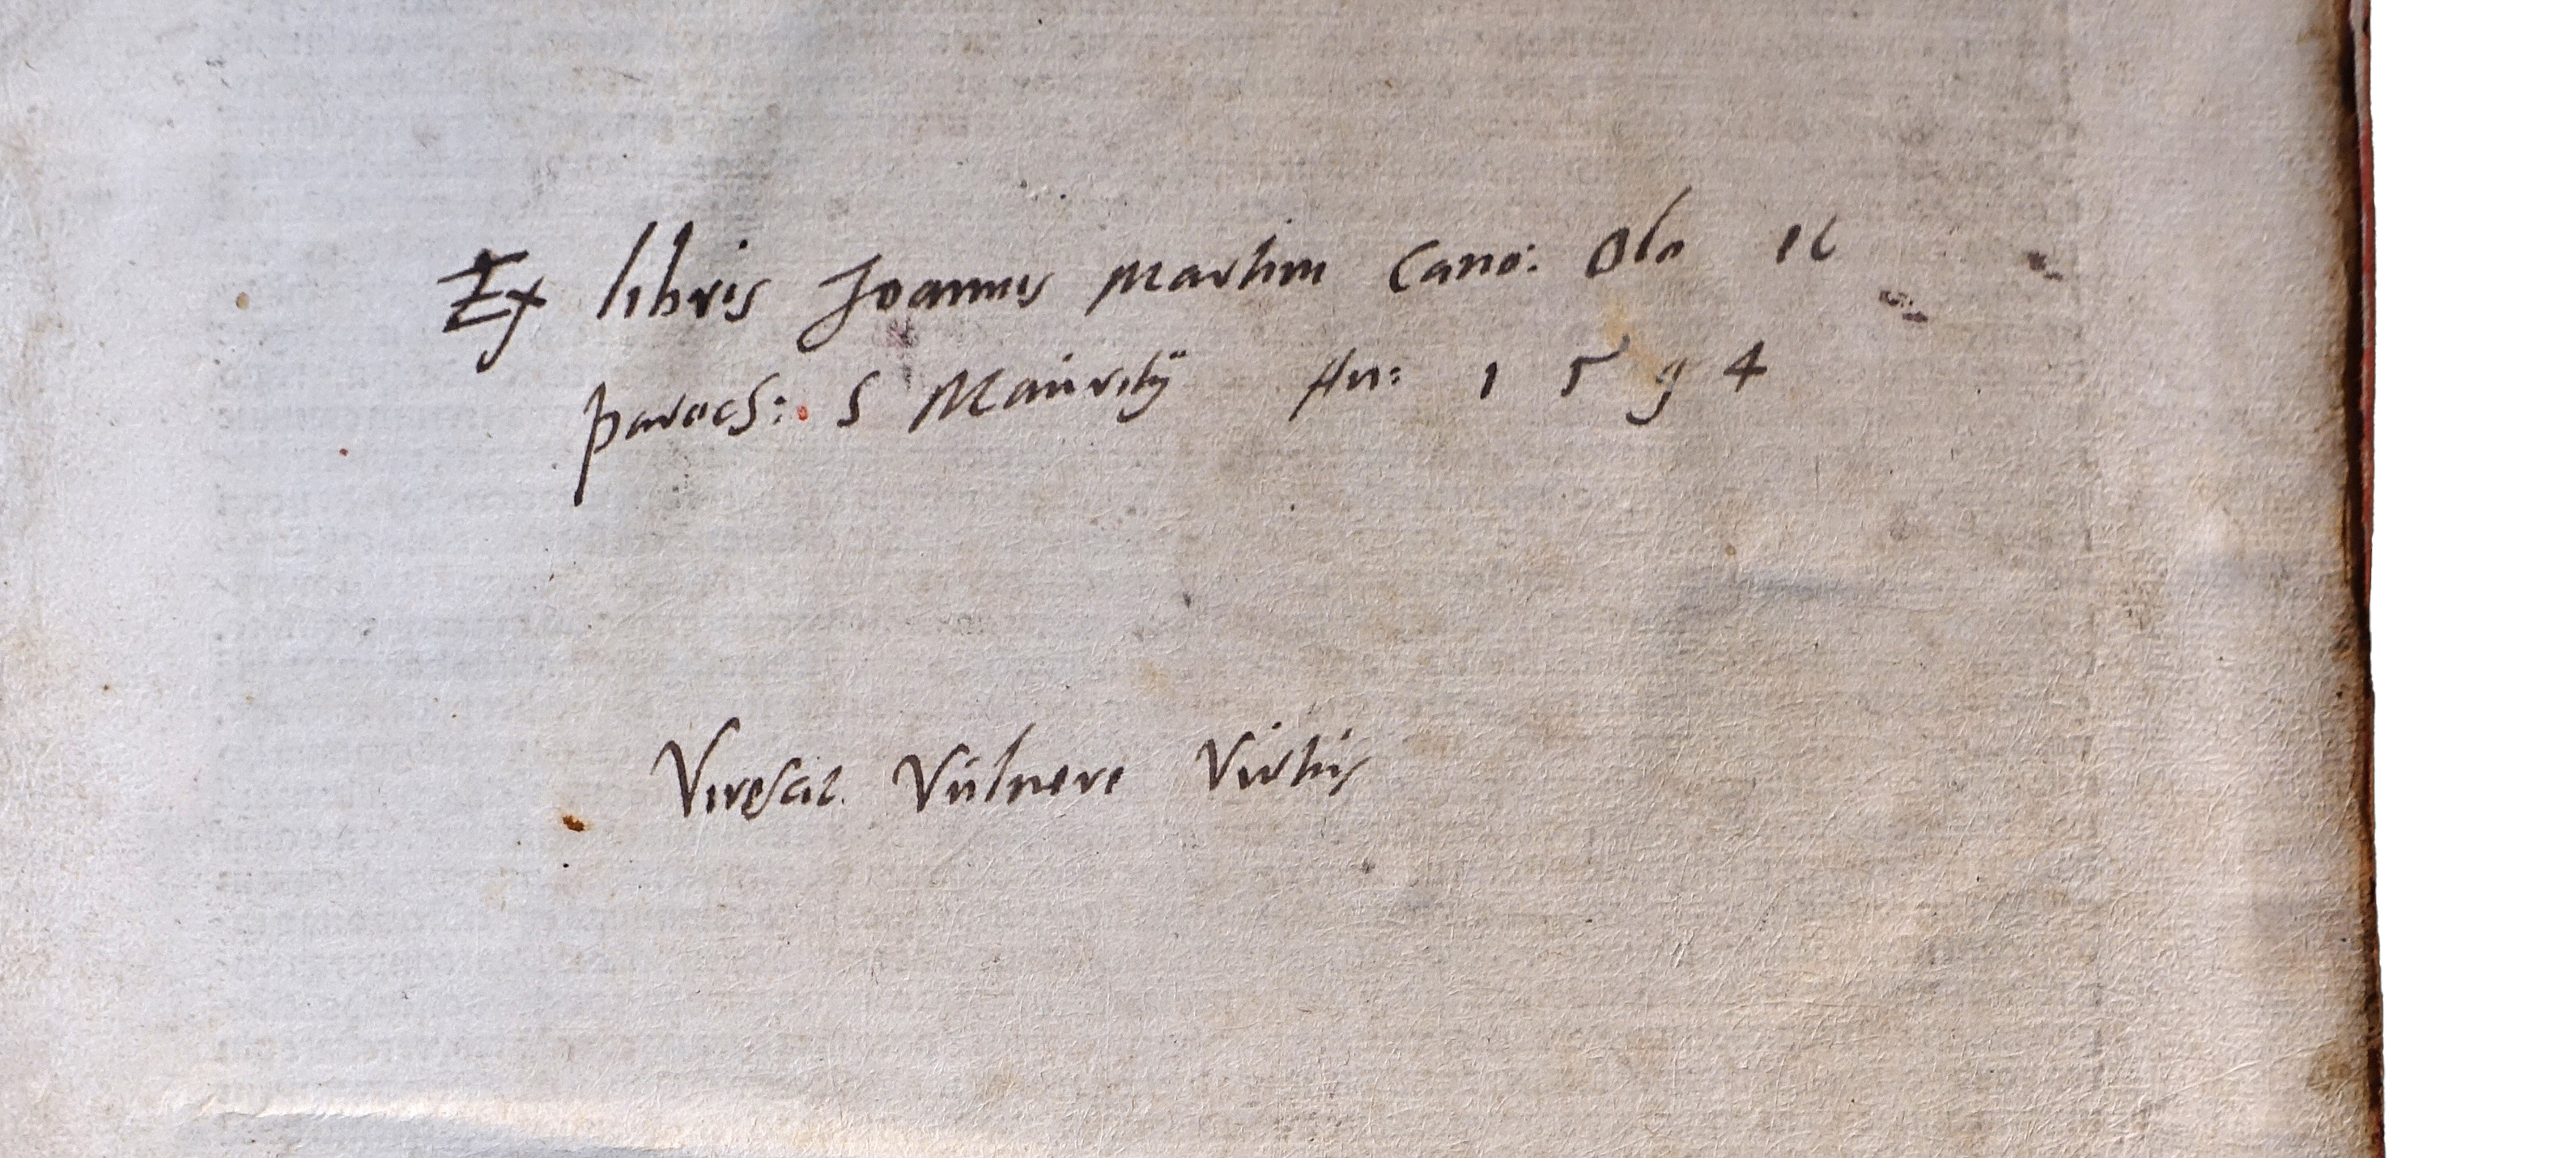 Ex libris Joannis Martini Cano: Olo et
paroch: S Mauritij An: 1594
Virescit Vulnere Virtus